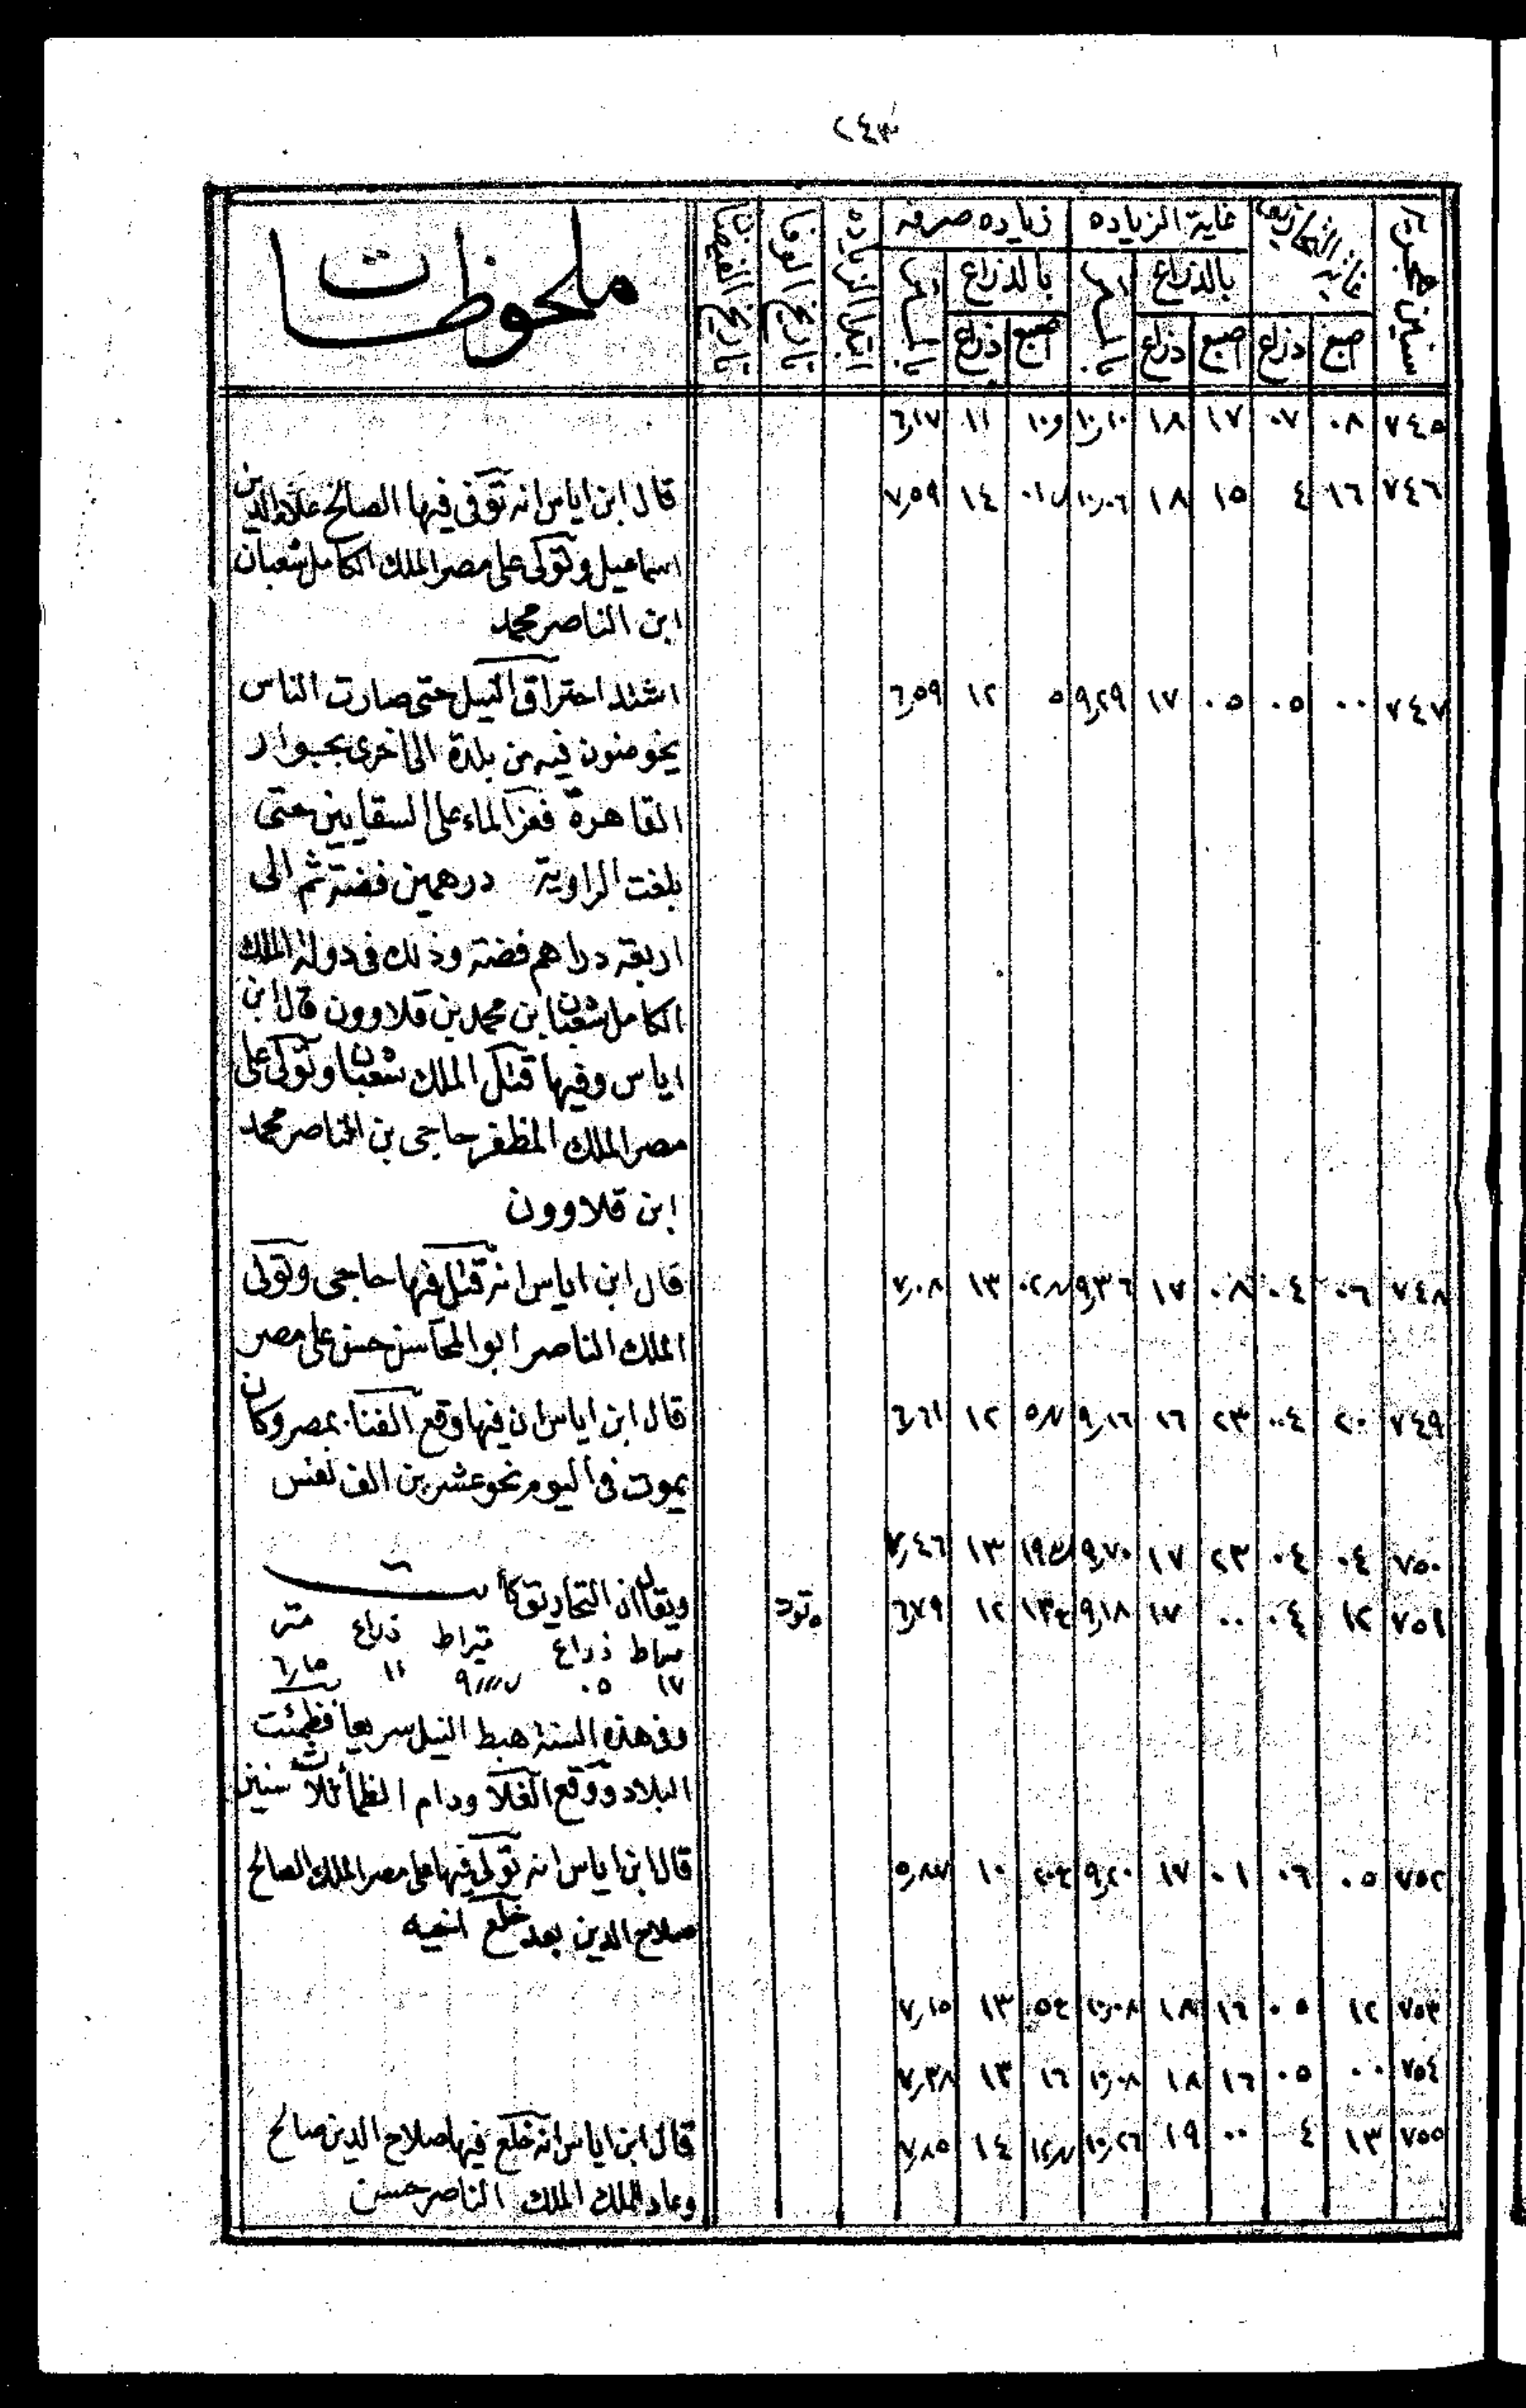 ٢٤٣
سنين هجرية
غاية التحاريق
غاية الزياده
زياده صرفه
ابتدا الزياده
تاريخ الوفا
تاريخ الفيضان
ملحوظات
بالذراع
بالمتر
بالذراع
بالمتر
اصبع ذراع اصبع ذراع اصبع ذراع
٧٤٥ ٠٨ ٠٧ ١٧ ١٨ ١٠,١٠ ١١ ٦,١٧
٧٤٦ ١٦ ٤ ١٥ ١٨ ١٠,٠٦ ١٤ ٧,٥٩
قال ابن اياس انه توفى فيها الصالح علاء الدين
اسماعيل وتولى على مصر الملك الكامل شعبان
ابن الناصر محمد
٧٤٧ ٠٠ ٠٥ ٠٥ ١٧ ٩,٢٩ ٥ ١٢ ٦,٥٩
اشتد احتراق النيل حتى صارت الناس
يخوضون فيه من بلدة الى اخرى بجوار
القاهرة فعز الماء على السقايين حتى
بلغت الراوية درهمين فضة ثم الى
اربعة دراهم فضة وذلك فى دولة الملك
الكامل شعبان ابن محمد بن قلاوون قال ابن
اياس وفيها قتل الملك شعبان وتولى على
مصر الملك المظفر حاجى بن الناصر محمد
ابن قلاوون
٧٤٨ ٠٦ ٠٤ ٠٨ ١٧ ٩,٣٦ ١٣ ٧,٠٨
قال ابن اياس انه قتل فيها حاجى وتولى
الملك الناصر ابو المحاسن حسن على مصر
٧٤٩ ٢٠ ٠٤ ٢٣ ١٦ ٩,١٦ ١٢ ٦,٦١
قال ابن اياس ان فيها وقع الفناء بمصر وكان
يموت فى اليوم نحو عشرين الف نفس
٧٥٠ ٠٤ ٠٤ ٢٣ ١٧ ٩,٧٠ ١٣ ٧,٤٦
٧٥١ ١٢ ٠٤ ٠٠ ١٧ ٩,١٨ ١٢ ٦,٧٩ ٥ توت
ويقال ان التحاريق كانت
قيراط ذراع قيراط ذراع متر
١٧ ٠٥ ١١ ٦,١٥
وفى هذه السنة هبط النيل سريعا فظمئت
البلاد ووقع الغلا ودام الظمأ ثلاث سنين
٧٥٢ ٠٥ ٠٦ ٠١ ١٧ ٩,٢٠ ١٠
قال ابن اياس انه تولى فيها على مصر الملك الصالح
صلاح الدين بعد خلع اخيه
٧٥٣ ١٢ ٠٥ ١٦ ١٨ ١٠,٠٨ ١٣ ٧,١٥
٧٥٤ ٠٠ ٠٥ ١٦ ١٨ ١٠,٠٨ ١٦ ١٣ ٧,٣٨
٧٥٥ ١٣ ٤ ٠٠ ١٩ ١٠,٢٦ ١٤ ٧,٨٥
قال ابن اياس انه خلع فيها صلاح الدين صالح
وعاد الملك الملك الناصر حسن